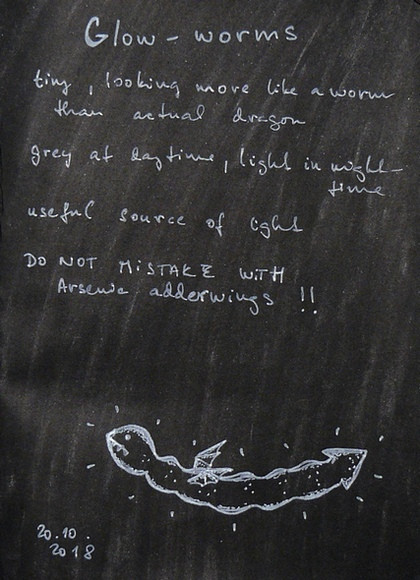 Glow-worms
tiny, looking more like a worm
than actual dragon
grey at daytime, light in night-
time
useful source of light
DO NOT MISTAKE WITH
Arsenic adderwings !!
20.10.
2018